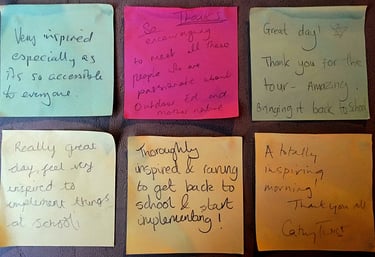 Very inspired
especially as
it's so accessible
to everyone.
Thanks
So
encouraging
to meet all these
people who are
passionate about
Outdoor Ed and
mother nature
Great day!
Thank you for the
tour - Amazing!
Bringing it back to School
Really great
day, feel very
inspired to
implement things
at school!
Thoroughly
inspired & raring
to get back to
school & start
implementing!
A totally
inspiring
morning!
Thank you all
Cathy